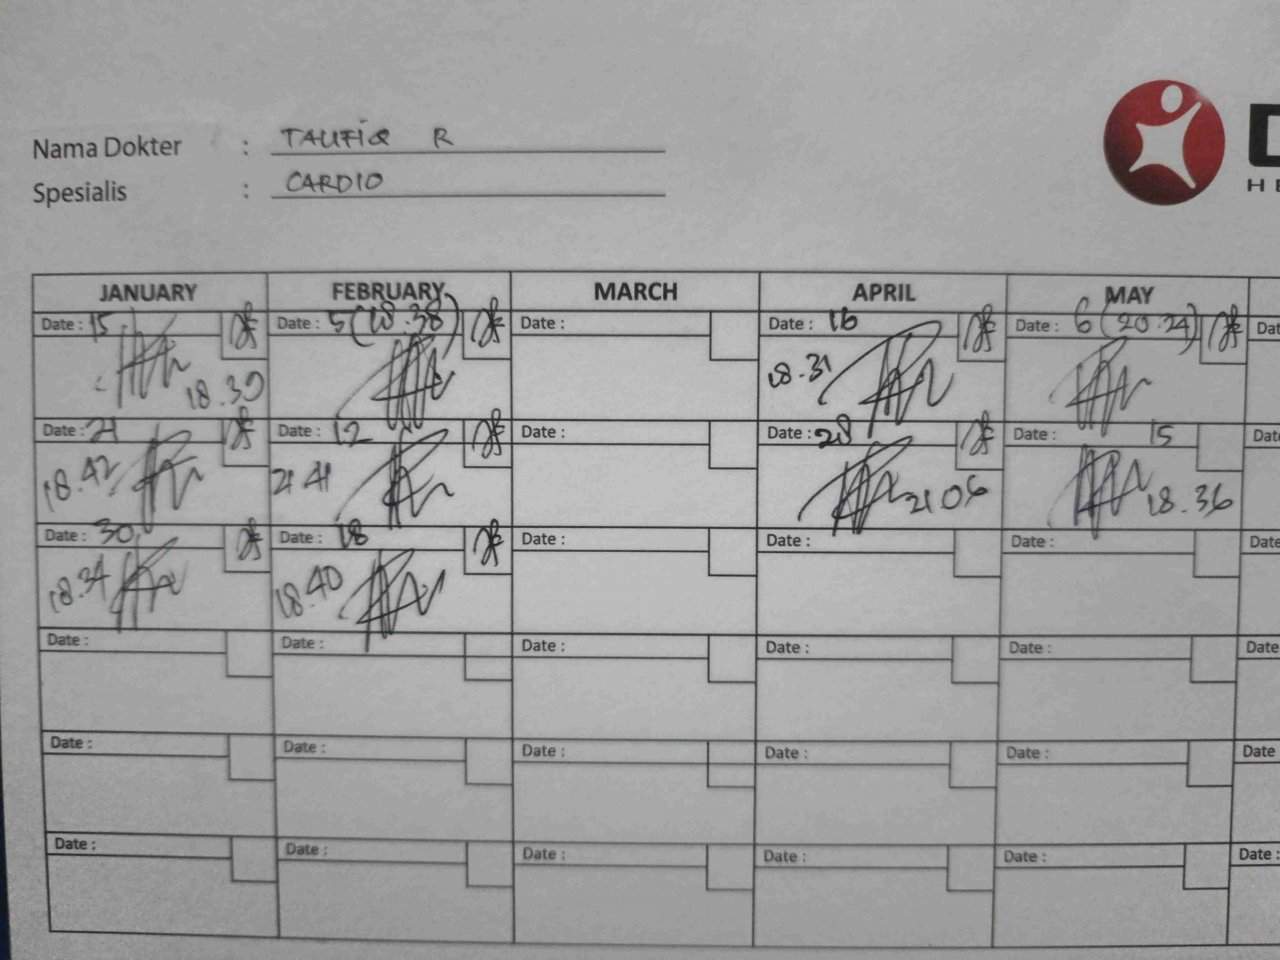 Nama Dokter : TAUFIQ R
Spesialis : CARDIO
D
HE
JANUARY FEBRUARY MARCH APRIL MAY
Date : 15 Date : 5 (18.38) Date : Date : 16 Date : 6 (20.24) Dat
18.30 18.31
Date : 21 Date : 12 Date : Date : 28 Date : 15 Date
18.42 21 41 21 06 18.36
Date : 30 Date : 18 Date : Date : Date : Date
18.34 18.40
Date : Date : Date : Date : Date : Date
Date : Date : Date : Date : Date : Date
Date : Date : Date : Date : Date : Date :